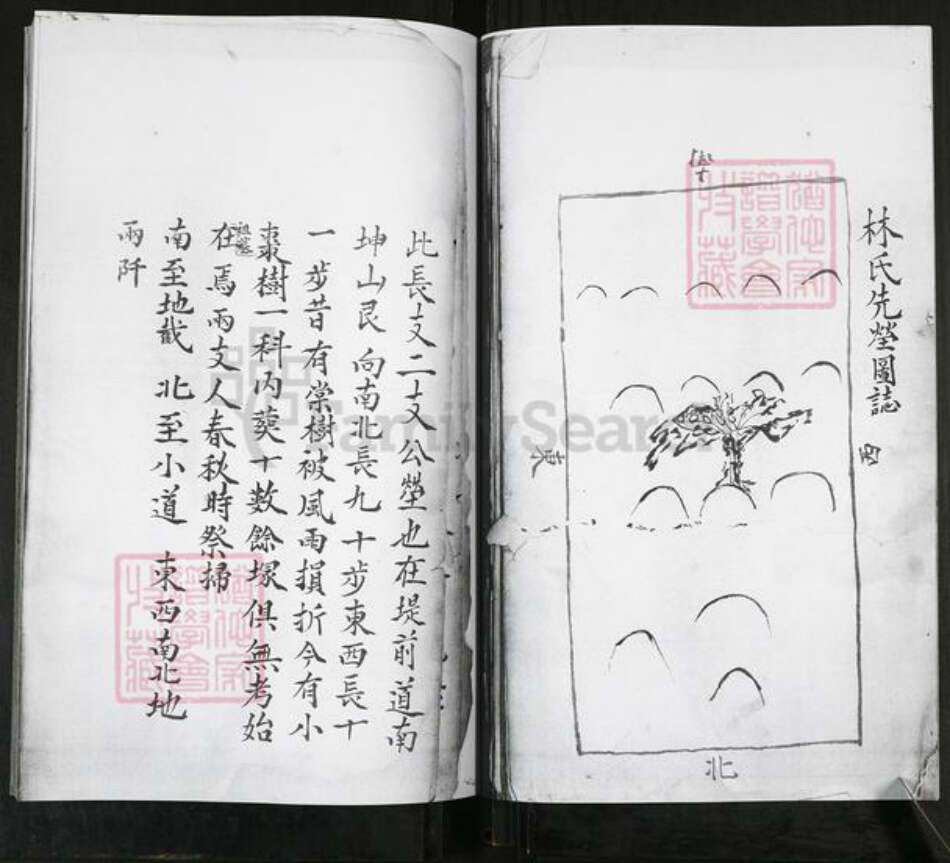 林氏先塋圖誌
西
東
北
此長支二支公塋也在堤前道南
坤山艮向南北長九十步東西長十
一步昔有棠樹被風雨損折今有小
棗樹一科內葬十數餘塚俱無考始
祖塋
在焉兩支人春秋時祭掃
南至地截 北至小道 東西南北地
兩阡
猶他家譜學會特藏
猶他家譜學會特藏
FamilySearch